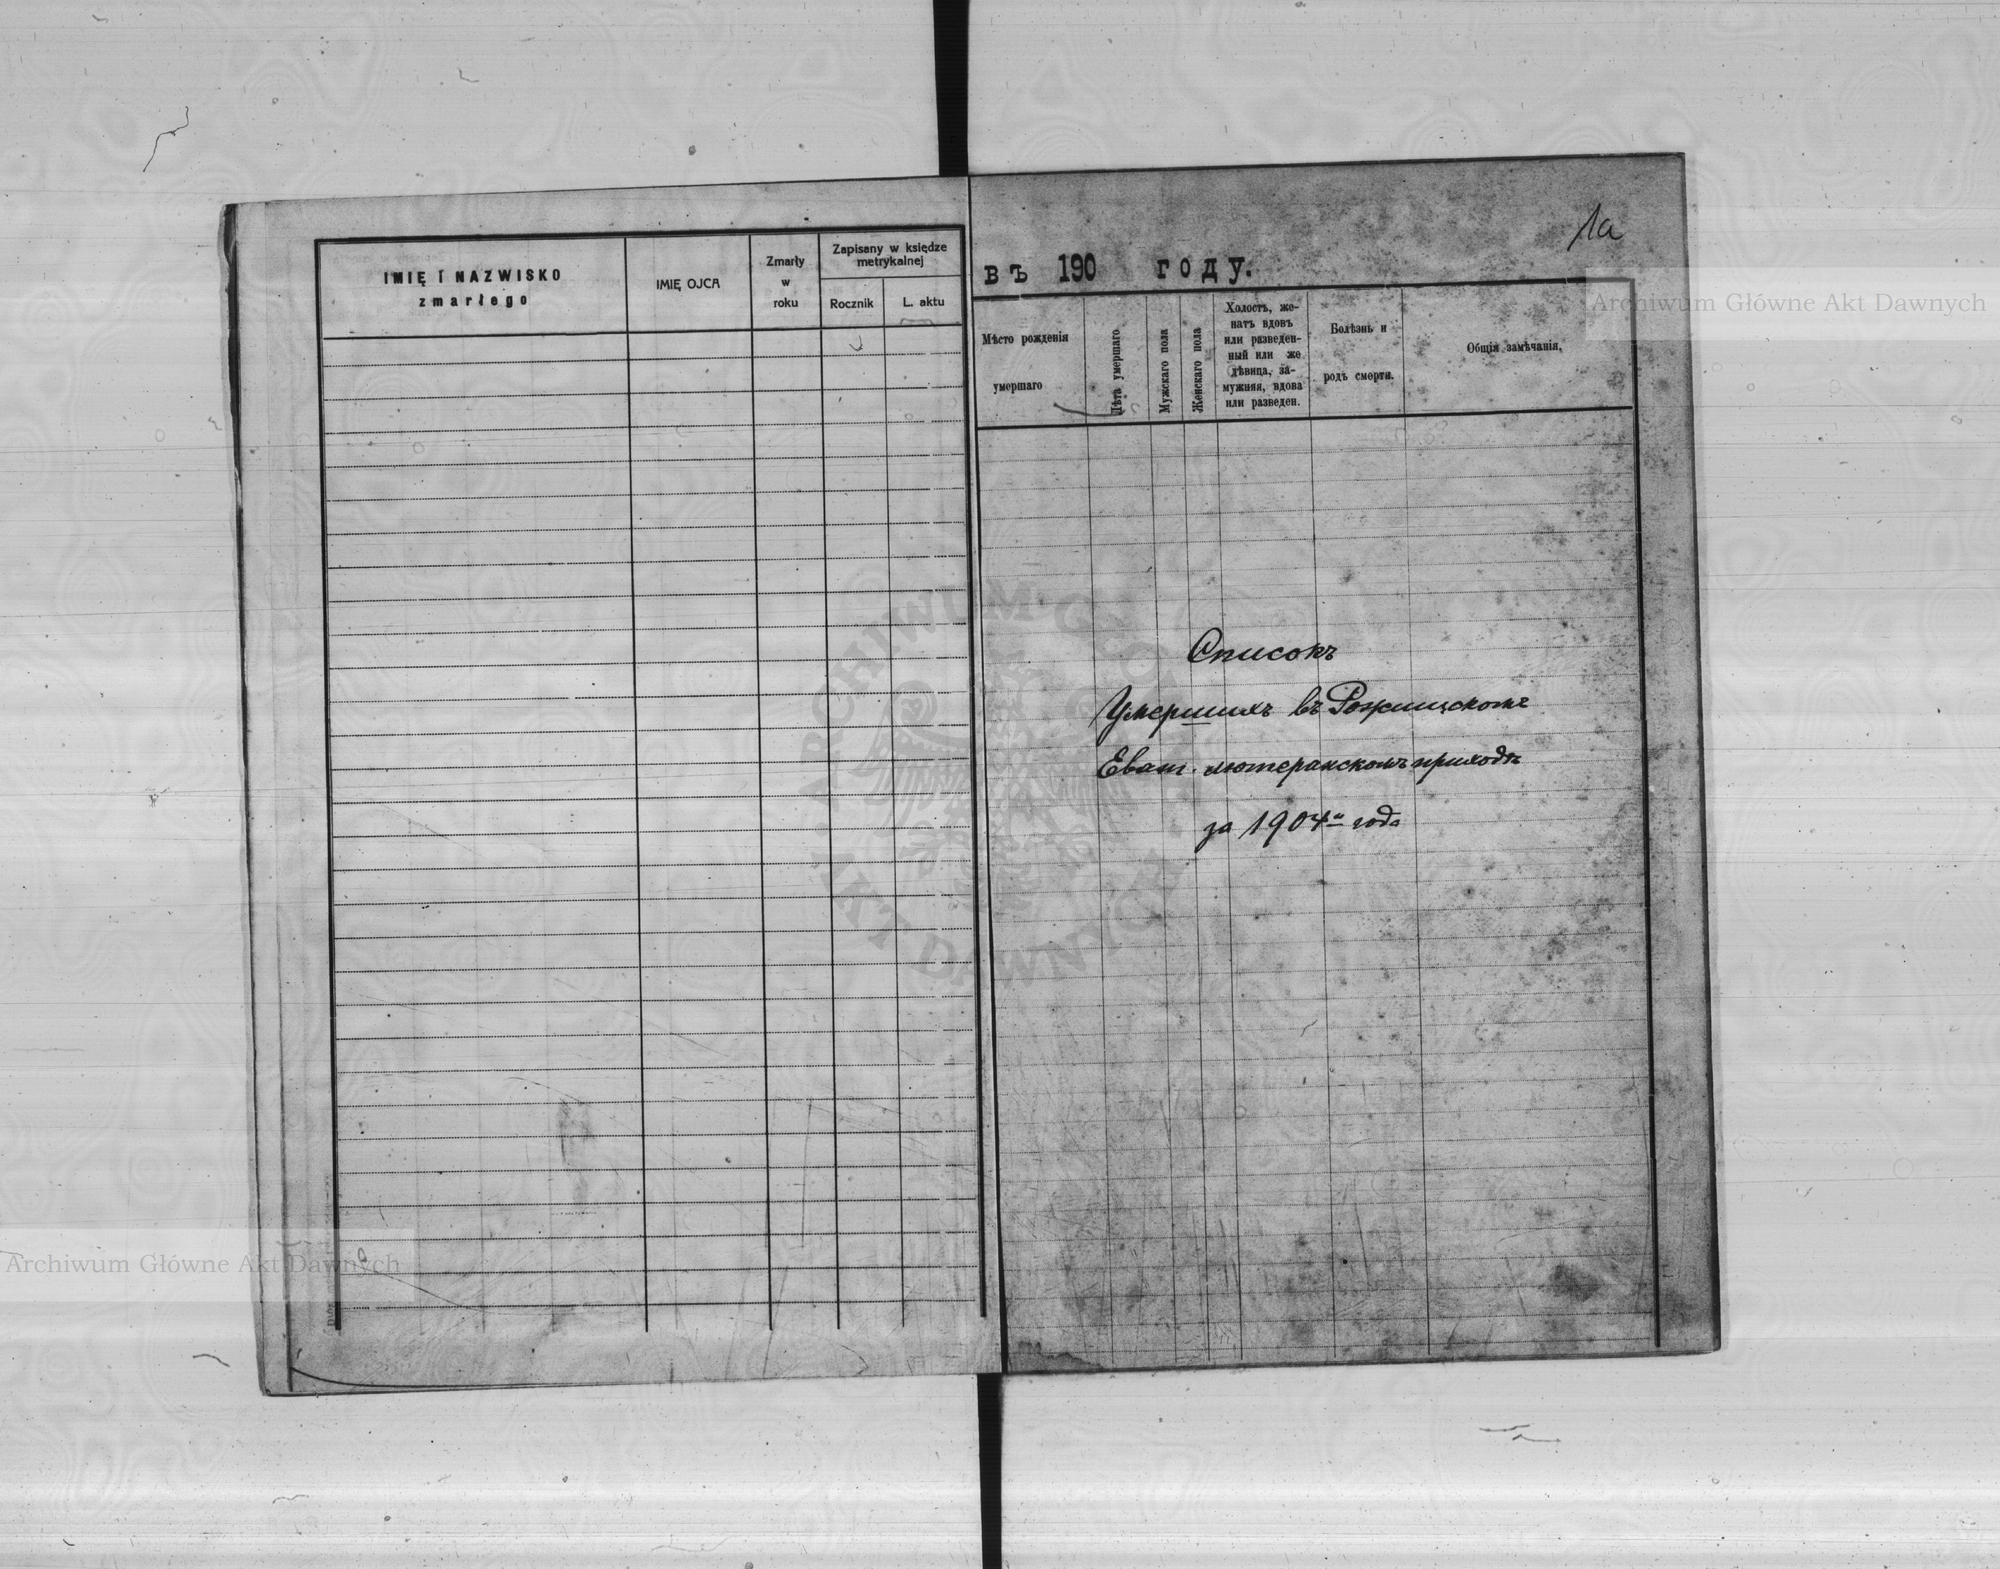 IMIĘ I NAZWISKO
zmarłego
IMIĘ OJCA
Zmarły
w
roku
Zapisany w księdze
metrykalnej
Rocznik
L. aktu
1a
въ 190 году.
Мѣсто рожденія
умершаго
Лѣта умершаго
Мужскаго пола
Женскаго пола
Холостъ, же-
натъ вдовъ
или разведен-
ный или же
дѣвица, за-
мужняя, вдова
или разведен.
Болѣзнь и
родъ смерти.
Общія замѣчанія.
Списокъ
Умершихъ въ Рожищскомъ
Еванг. лютеранскомъ приходѣ
за 1904й года
Archiwum Główne Akt Dawnych
ARCHIWUM GŁÓWNE AKT DAWNYCH
Archiwum Główne Akt Dawnych